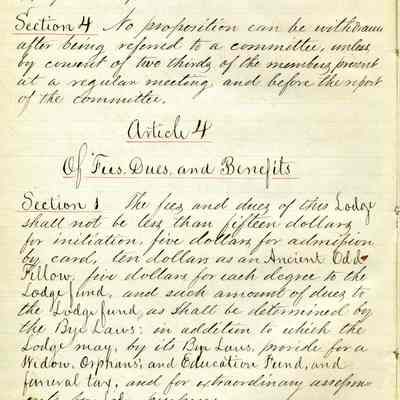 Section 4 No proposition can be withdrawn
after being refered to a committee, unless
by consent of two thirds of the members present
at a regular meeting, and before the report
of the committee.
Article 4
Of Fees, Dues, and Benefits
Section 1 The fees and dues of this Lodge
shall not be less than fifteen dollars
for initiation, five dollars for admission
by card, ten dollars as an Ancient Odd
Fellow, five dollars for each degree to the
Lodge fund, and such amount of dues to
the Lodge fund, as shall be determined by
the Bye Laws: in addition to which the
Lodge may, by its Bye Laws, provide for a
Widow, Orphans, and Education Fund, and
funeral tax, and for extraordinary assess-